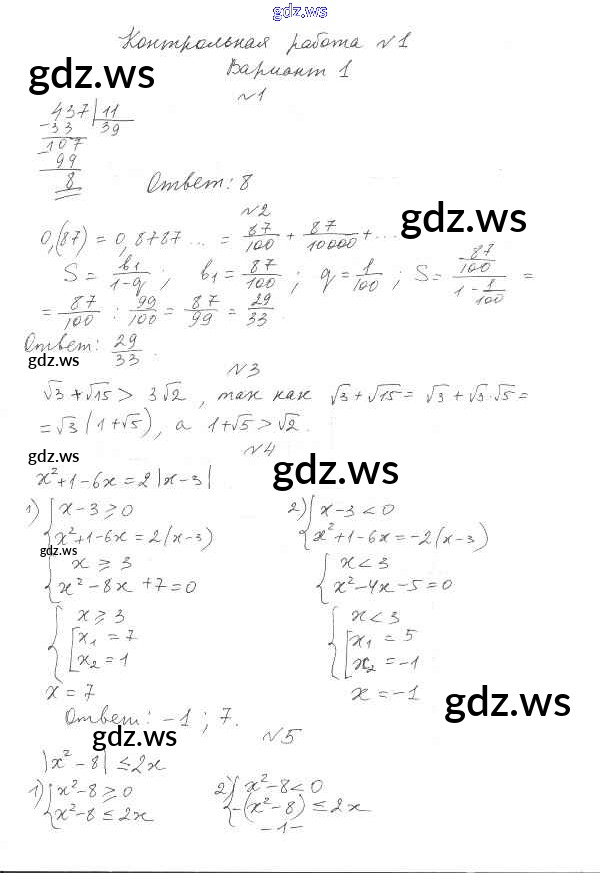 gdz.ws
Контрольная работа №1
gdz.ws
Вариант 1
№1
437 | 11
-33 39
-107
99
8
Ответ: 8
№2
gdz.ws
0,(87) = 0,8787... = 87/100 + 87/10000 + ...
S = b₁/(1-q); b₁ = 87/100; q = 1/100; S = (87/100)/(1 - 1/100) =
= 87/100 : 99/100 = 87/99 = 29/33.
Ответ: 29/33.
gdz.ws
№3
√3 + √15 > 3√2, так как √3 + √15 = √3 + √3·√5 =
= √3 (1+√5), а 1+√5 > √2.
gdz.ws
№4
gdz.ws
x²+1-6x = 2|x-3|
1) { x-3 ≥ 0 2) { x-3 < 0
x²+1-6x = 2(x-3) x²+1-6x = -2(x-3)
gdz.ws
{ x ≥ 3 { x < 3
x²-8x+7=0 x²-4x-5=0
{ x ≥ 3 { x < 3
[ x₁ = 7 [ x₁ = 5
x₂ = 1 x₂ = -1
x = 7 x = -1
gdz.ws
Ответ: -1; 7.
gdz.ws
№5
|x²-8| ≤ 2x
1) { x²-8 ≥ 0 2) { x²-8 < 0
x²-8 ≤ 2x -(x²-8) ≤ 2x
-1-